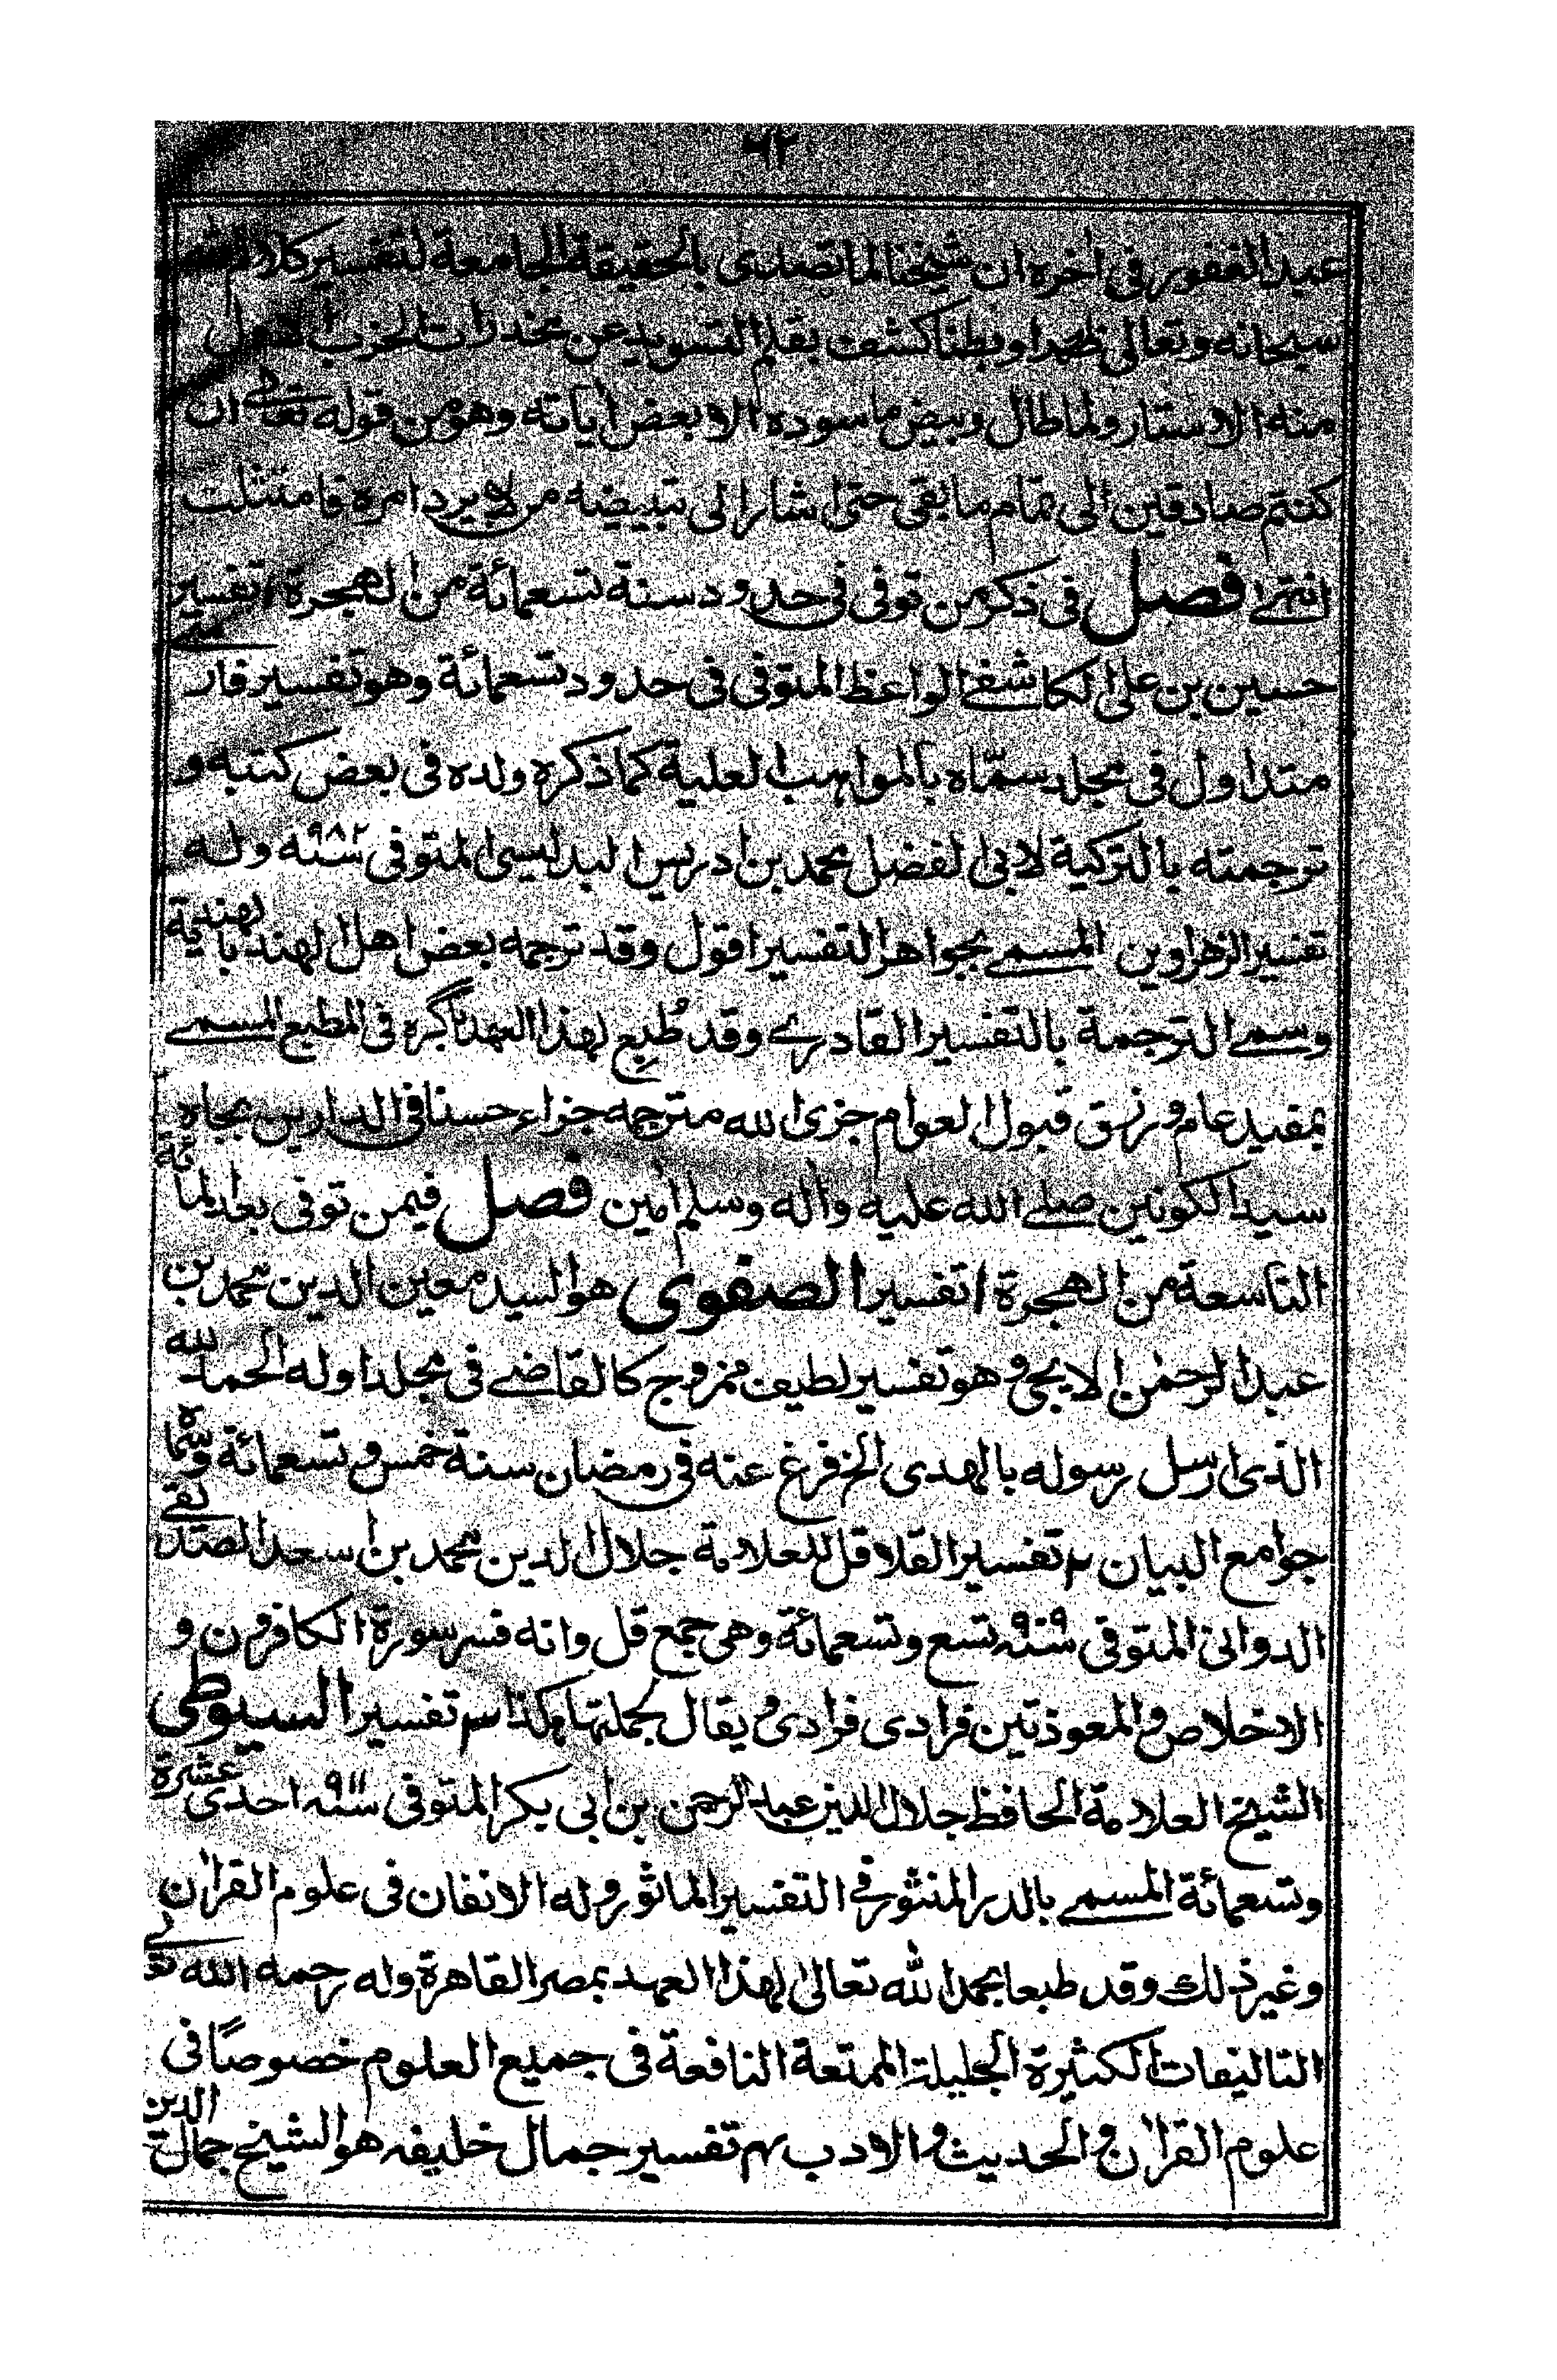 ٦٢
عبد الغفور فى اخره ان شيخنا لما تصدى بالحقيقة الجامعة لتفسير كلام الله
سبحانه وتعالى ظهرا وبطنا كشف بقلم التسويد عن مخدرات الحزب الاول
منه الاستار ولما طال وبيض ما سوده الا بعض اياته وهو من قوله تعالى ان
كنتم صادقين الى تمام ما بقى حتى اشار الى تبييضه من لا يرد امره فامتثلت
انتهى فصل فى ذكر من توفى فى حدود سنة تسعمائة من الهجرة ١ تفسير
حسين بن على الكاشفى الواعظ المتوفى فى حدود تسعمائة وهو تفسير فارسى
متداول فى مجلد سمّاه بالمواهب العلية كما ذكره ولده فى بعض كتبه و
ترجمته بالتركية لابى الفضل محمد بن ادريس البدليسى المتوفى سنة ٩٨٢ وله
تفسير الزهراوين المسمى بجواهر التفسير اقول وقد ترجمه بعض اهل الهند بالهندية
وسمى الترجمة بالتفسير القادرى وقد طُبِع لهذا العهد باگره فى المطبع المسمى
بمفيد عام ورزق قبول العوام جزى الله مترجمه جزاء حسنا فى الدارين بجاه
سيد الكونين صلى الله عليه واله وسلم امين فصل فيمن توفى بعد المائة
التاسعة من الهجرة ١ تفسير الصفوى هو السيد معين الدين محمد بن
عبد الرحمٰن الايجى وهو تفسير لطيف ممزوج كالقاضى فى مجلد اوله الحمد لله
الذى ارسل رسوله بالهدى الخ فرغ عنه فى رمضان سنة خمس وتسعمائة وسماه
جوامع البيان ٢ تفسير القلاقل للعلامة جلال الدين محمد بن اسعد الصديقى
الدوانى المتوفى سنة ٩٠٩ تسع وتسعمائة وهى جمع قل وانه فسر سورة الكافرون و
الاخلاص والمعوذتين فرادى فرادى ويقال بجملتها هكذا ٣ تفسير السيوطى
الشيخ العلامة الحافظ جلال الدين عبد الرحمن بن ابى بكر المتوفى سنة ٩١١ احدى عشرة
وتسعمائة المسمى بالدر المنثور فى التفسير الماثور وله الاتقان فى علوم القراٰن
وغير ذلك وقد طبعا بحمد الله تعالىٰ لهذا العهد بمصر القاهرة وله رحمه الله تعالى
التاليفات الكثيرة الجليلة الممتعة النافعة فى جميع العلوم خصوصًا فى
علوم القراٰن والحديث والادب ٤ تفسير جمال خليفه هو الشيخ جمال الدين